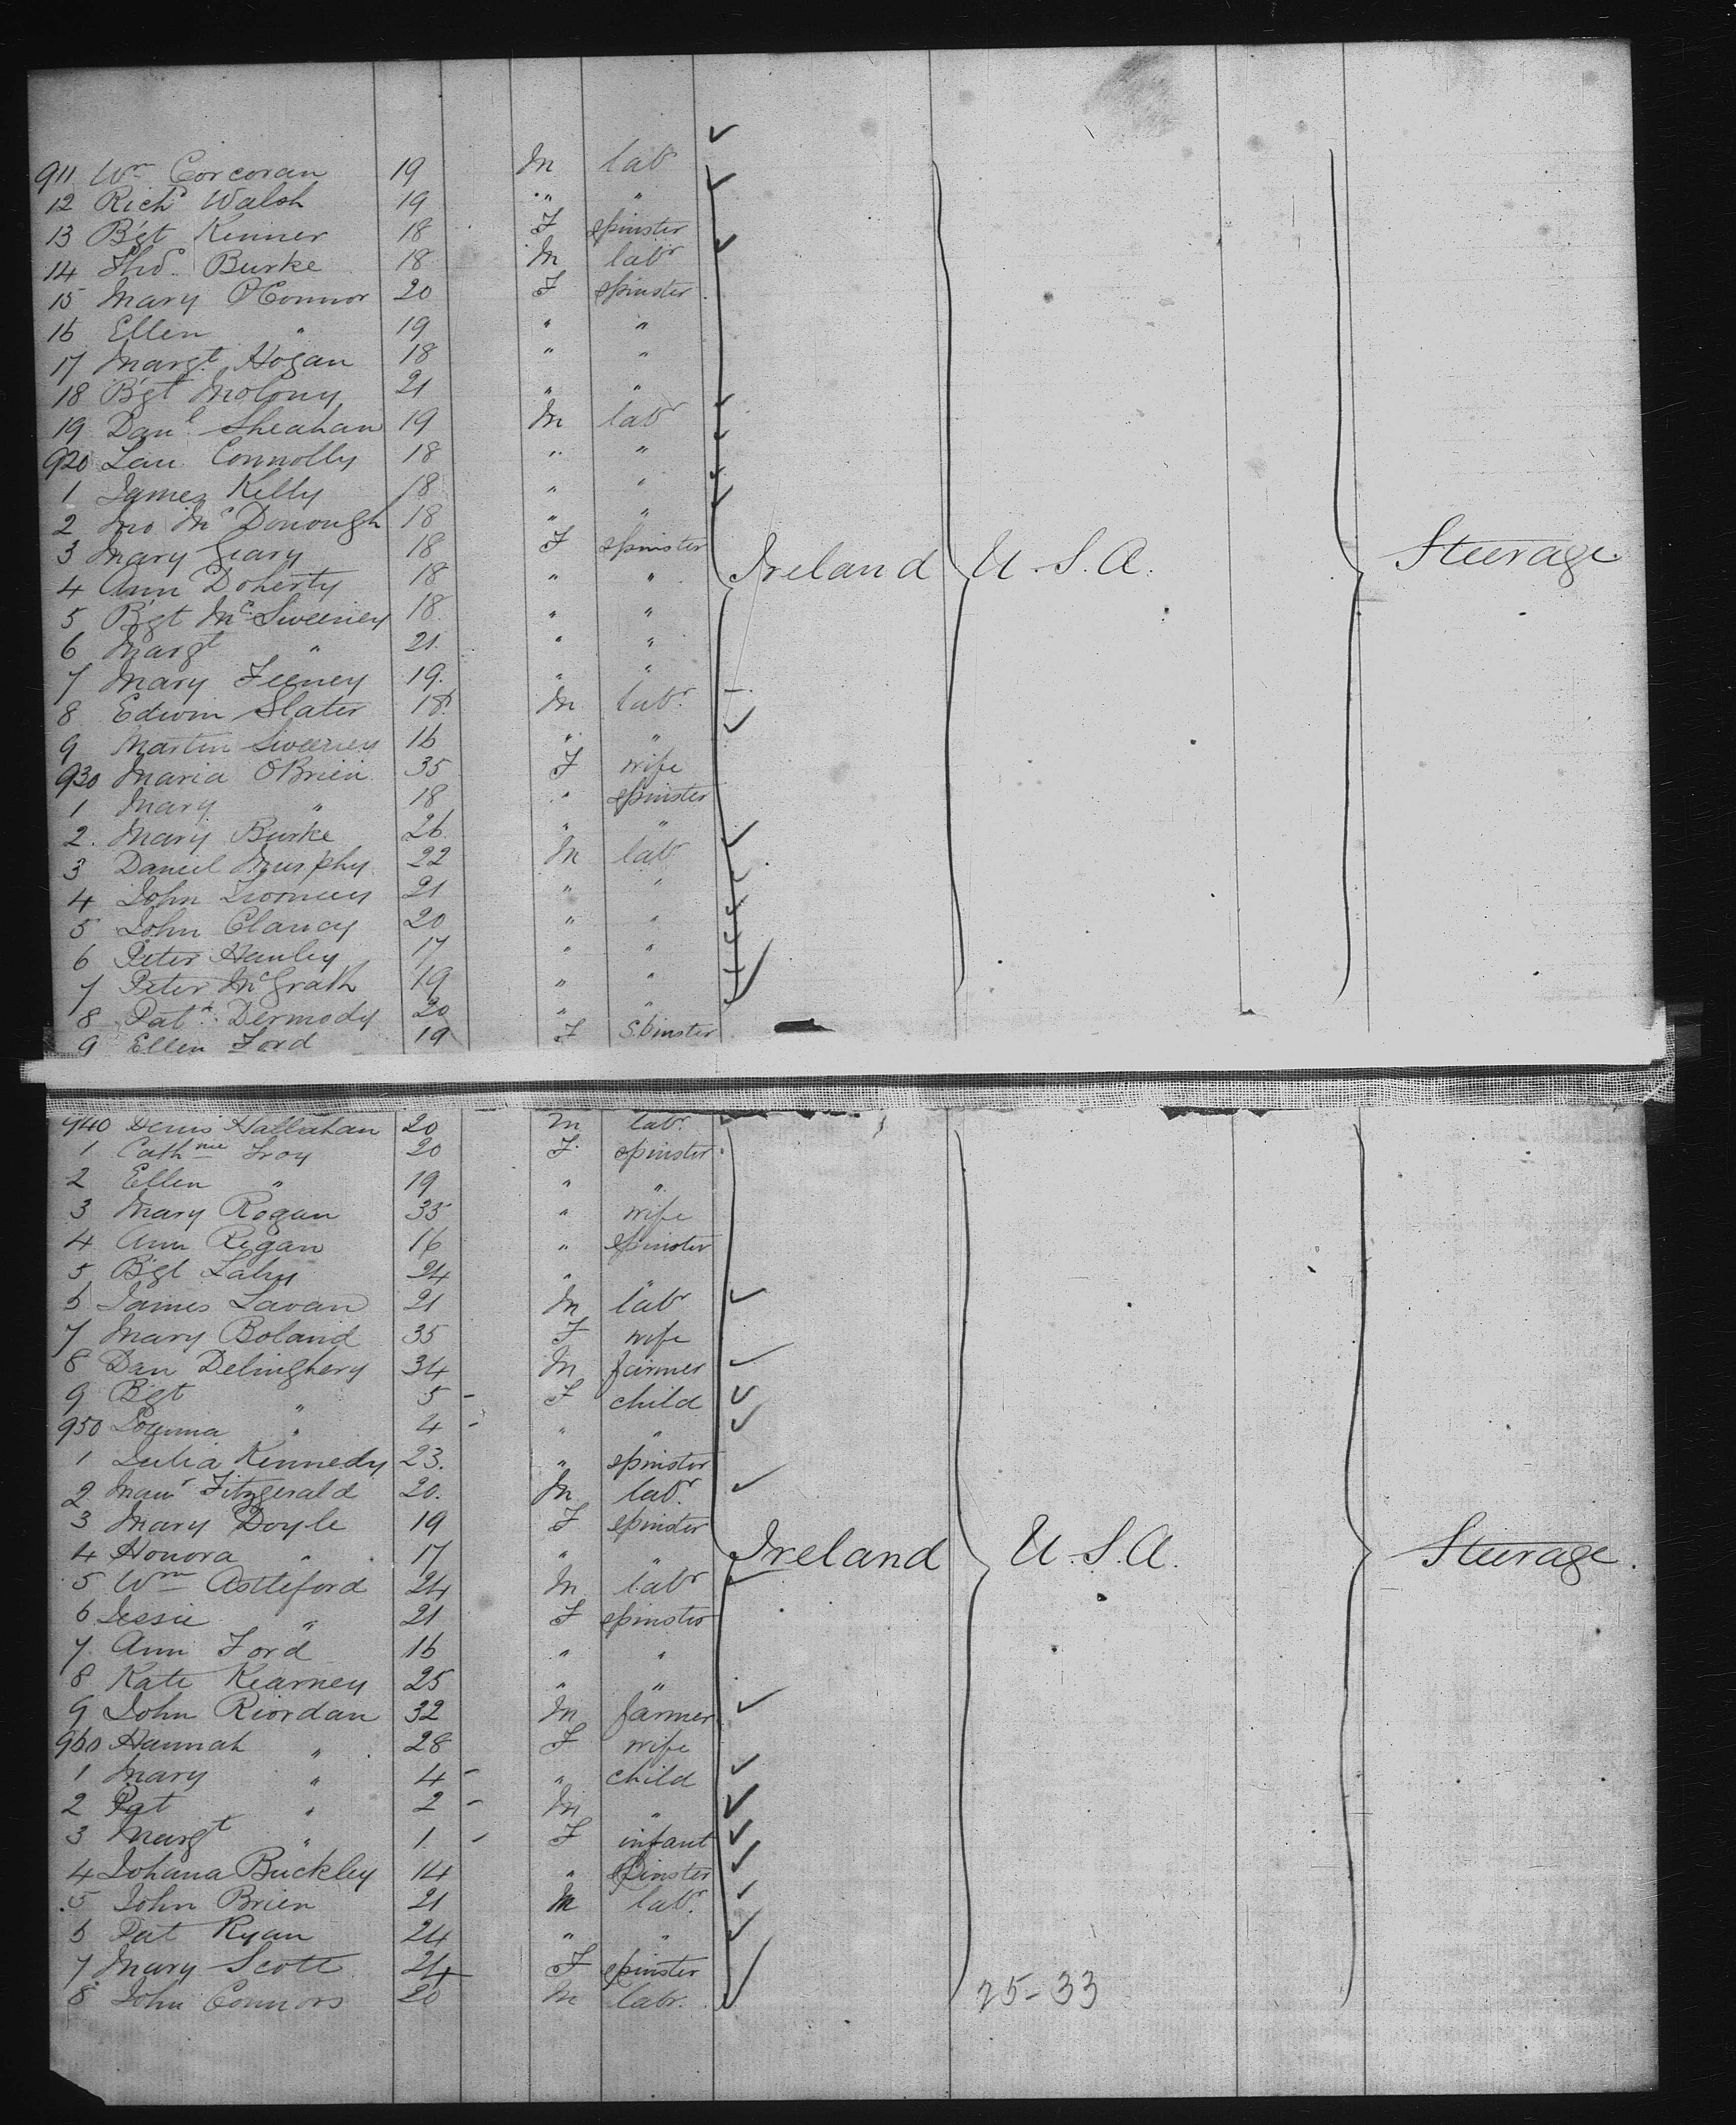 911 Wm Corcoran 19 M labr
12 Richd Walsh 19 " "
13 Bgt Kinner 18 F spinster
14 Thos. Burke 18 M labr
15 Mary O'Connor 20 F spinster
16 Ellen " 19 " "
17 Margt Hogan 18 " "
18 Bgt Molony 21 " "
19 Danl Sheahan 19 M labr
920 Lau Connolly 18 " "
1 James Kelly 18 " "
2 Jno McDonough 18 " "
3 Mary Geary 18 F spinster
Ireland U.S.A. Steerage
4 Ann Doherty 18 " "
5 Bgt McSweeney 18 " "
6 Margt " 21 " "
7 Mary Feeney 19 " "
8 Edwin Slater 18 M labr
9 Martin Sweeney 16 " "
930 Maria O'Brien 35 F wife
1 Mary " 18 " spinster
2 Mary Burke 26 " "
3 Daniel Murphy 22 M labr
4 John Twomey 21 " "
5 John Clancy 20 " "
6 Peter Hanley 17 " "
7 Peter McGrath 19 " "
8 Patk. Dermody 20 " "
9 Ellen Ford 19 F Spinster
940 Denis Hallahan 20 M labr.
1 Cathne Troy 20 F spinster
2 Ellen " 19 " "
3 Mary Rogan 35 " wife
4 Ann Regan 16 " spinster
5 Bgt 24 " "
6 James Lavan 21 M labr
7 Mary Boland 35 F wife
8 Dan Delinghery 34 M farmer
9 Bgt " 5 - F child
950 Joanna " 4 - " "
1 Julia Kennedy 23. " spinster
2 Maur Fitzgerald 20. M labr.
3 Mary Doyle 19 F spinster
4 Honora " 17 " "
Ireland U.S.A. Steerage.
5 Wm Astleford 24 M labr
6 Jessie " 21 F spinster
7 Ann Ford 16 " "
8 Kate Kearney 25 " "
9 John Riordan 32 M farmer
960 Hannah " 28 F wife
1 Mary " 4 - " child
2 Pat " 2 - M "
3 Margt " 1 - F infant
4 Johana Buckley 14 " Spinster
5 John Brien 21 M labr.
6 Pat Ryan 24 " "
7 Mary Scott 24 F spinster
8 John Connors 20 M labr.
25-33